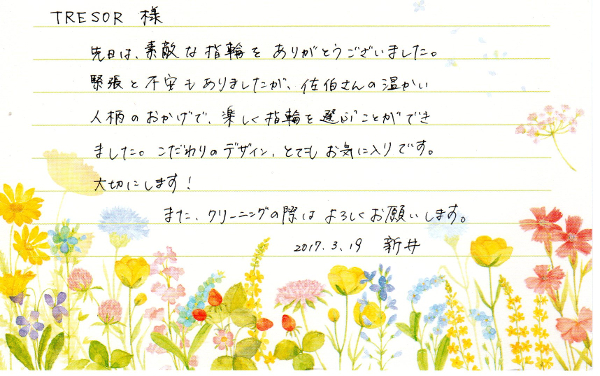 TRESOR 様
先日は、素敵な指輪をありがとうございました。
緊張と不安もありましたが、佐伯さんの温かい
人柄のおかげで、楽しく指輪を選ぶことができ
ました。こだわりのデザイン、とてもお気に入りです。
大切にします!
また、クリーニングの際はよろしくお願いします。
2017.3.19 新井